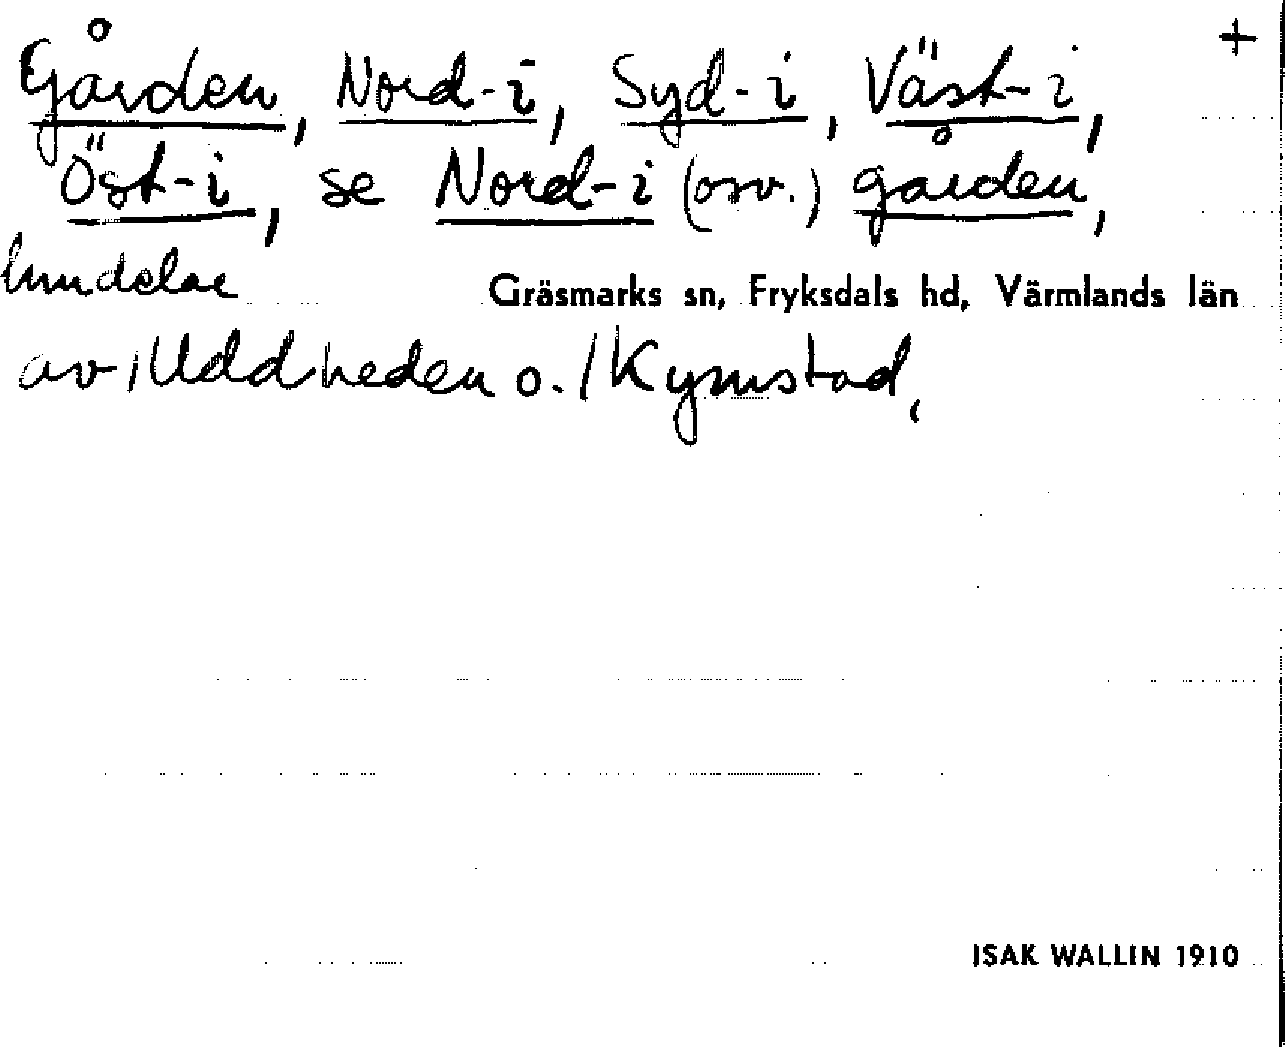 +
Gården, Nord-i, Syd-i, Väst-i,
Öst-i, se Nord-i (osv.) gården,
hmdelar Gräsmarks sn, Fryksdals hd, Värmlands län
av /Uddheden o. /Kymstad,
ISAK WALLIN 1910